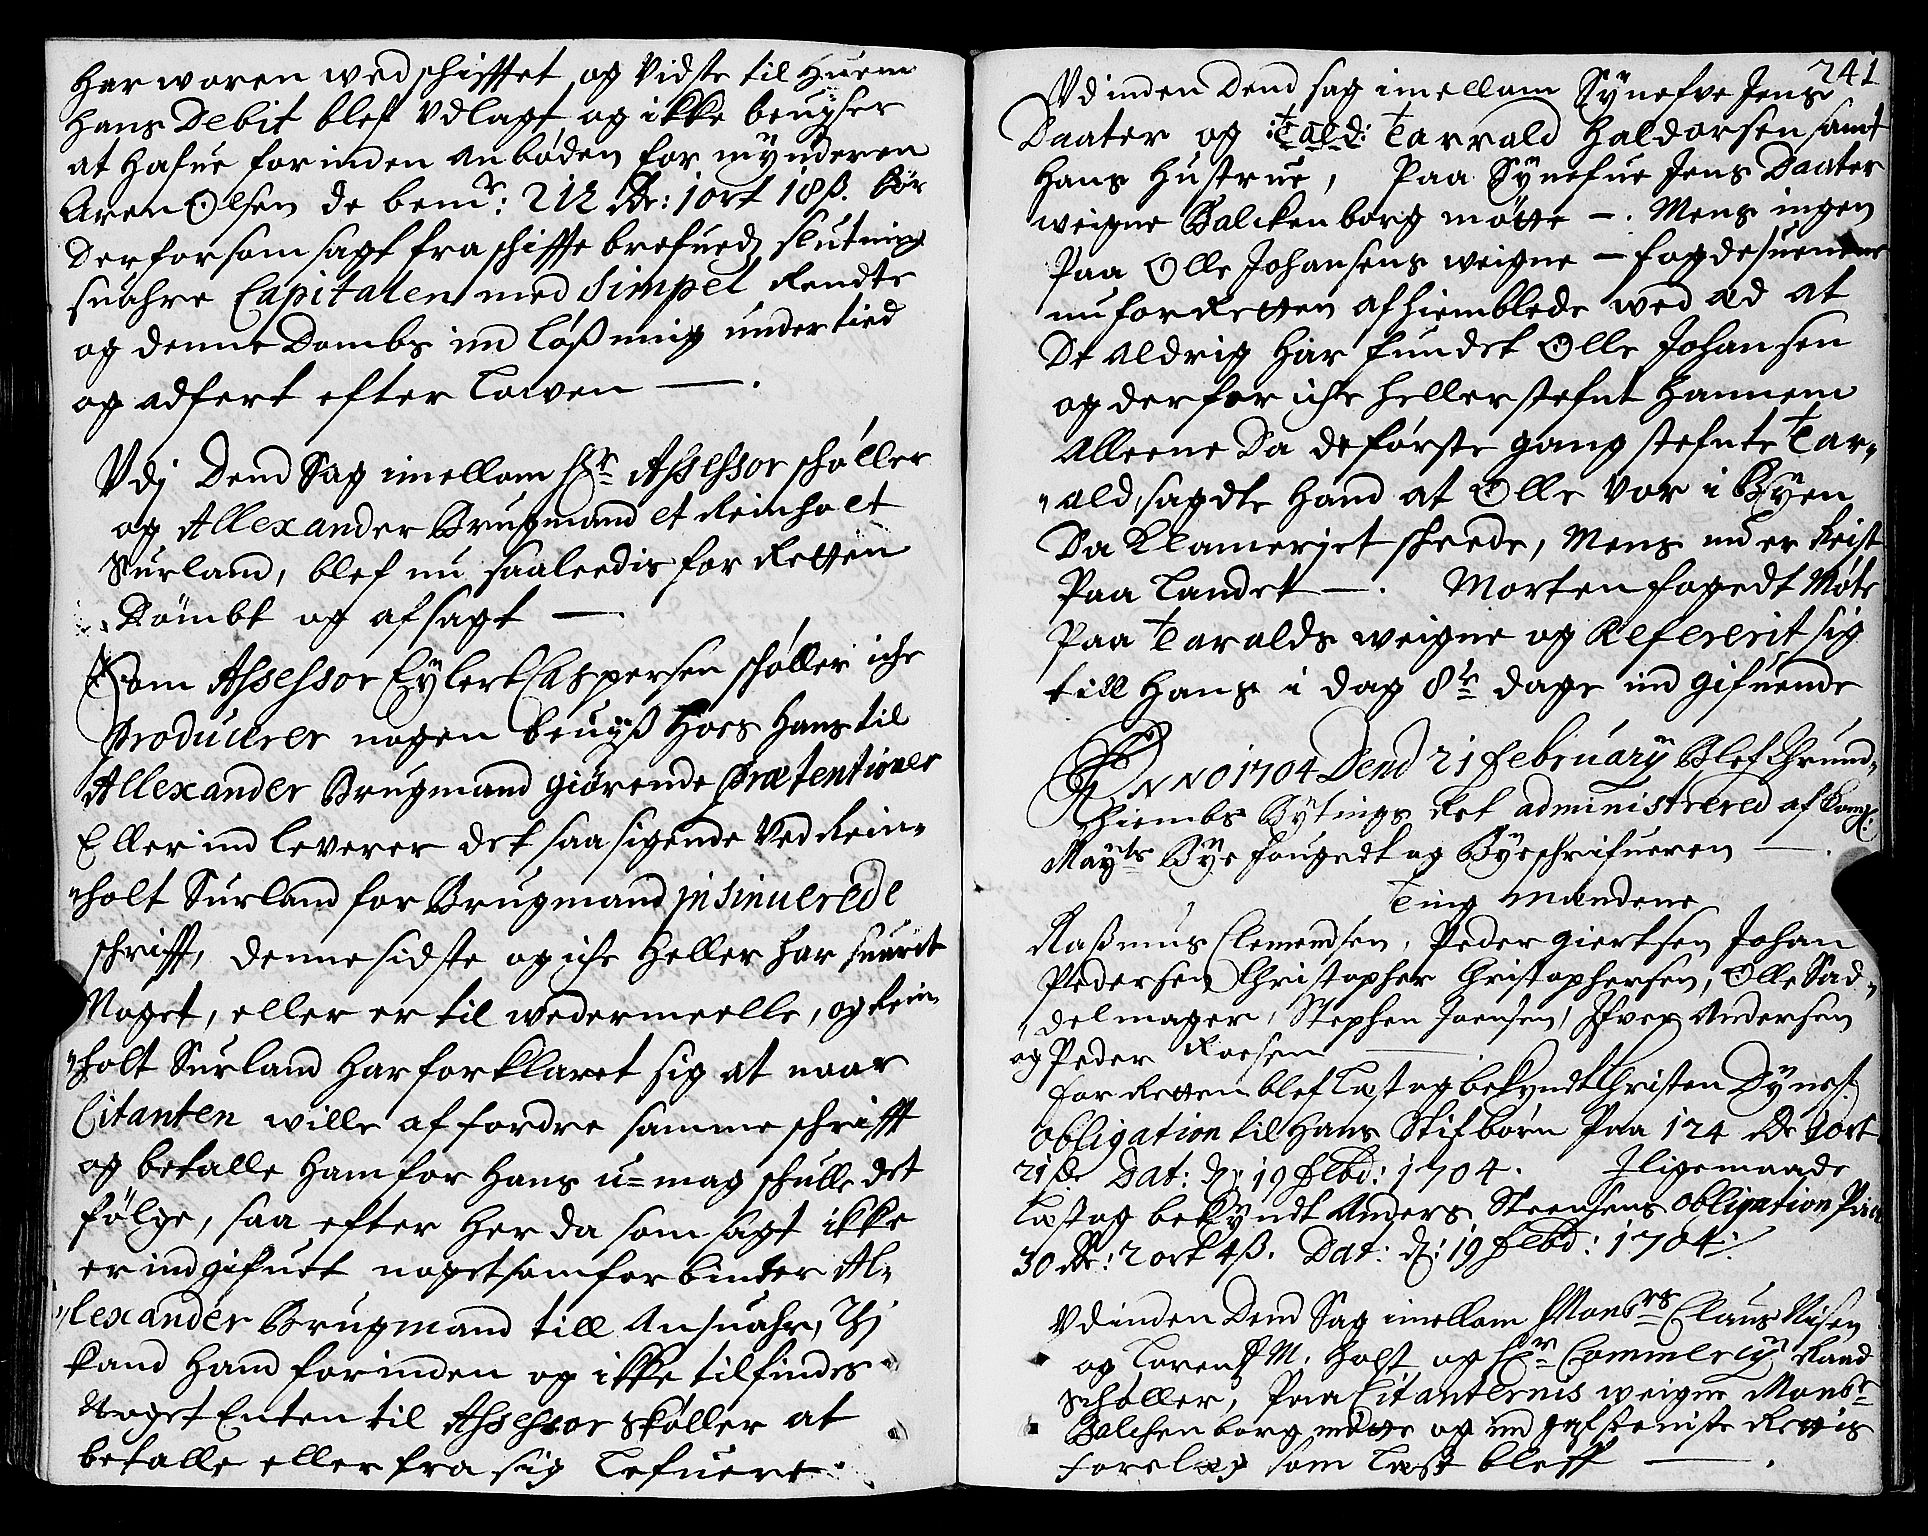 Har woren wed schifftet og Vidste til Huem
Hans Debit blef Vdlagt og ikke beuyser
at Hafue forinden anbøden formynderen
Aren Olsen de bemr: 212 Rdr: 1 ort 18ß. bør
Derfor som sagt fra schifte brefuedz slutning
suahre Capitalen med Simpel Rendte
og denne Dombs indløßning under lied
og adfert efter Lowen —.
Vdj Dend Sag imellom Hr Assessor schøller
og Allexander Brugmand et Reinholt
Surland, blef nu saaleedis for Retten
Dømbt og afsagt —
Som Assessor Eylert Caspersen schøller iche
Producerer nogen beuyß Hoes Hans til
Allexander Brugmand giørende Prætentioner
Eller ind leverer det saa sigende Ved Rein-
holt Surland for Brugmand insinuerede
schrifft, denne sidste og iche Heller har suaret
Noget, eller er til wedermeelle, og Rein-
holt Surland Har forklaret sig at naar
Citanten wille affordre samme schrifft
og betalle Ham for Hans u=mag schulle det
følge, saa efter Her da som sagt ikke
er indgifuet noget som forbinder Al-
lexander Brugmand till Ansuahr, Thj
kand Hand forinden og ikke tilfindes
Noget Enten til Assessor Skøller at
betalle eller fra sig Lefuere.
241
Vdinden Dend sag imellom Synefve Jens
Daater og Tarrald Haldorsen samt
Hans Hustrue, Paa Synefue Jens Daater
weigne Balckenborg møtte —. Mens ingen
Paa Olle Johansens weigne — fogdesuenene
nu for Retten afhiemblede wed æd at
De aldrig Har fundet Olle Johansen
og derfor iche heller stefnt Hannem
Alleene Da de første gang stefnte Tar-
ald, sagdte Hand at Olle Vor i Byen
Da Klameriet skeede, Mens nu er Reist
Paa Landet —. Morten fogedt Møte
Paa Taralds weigne og Refererit sig
till Hans i dag 8te dage indgifuende
ANNO 1704 Dend 21 February Blef Thrund-
hiembs Bytings Ret administrered af Kongl:
Mayts Bye fougedt og Byeschrifueren —.
Ting mændene
Raßmus Clemendsen, Peder giertsen Johan
Pedersen Christopher Christophersen, Olle Sad-
delmager, Stephen Joensen, Ifver Andersen
og Peder Roesen —
for Retten blef Læst og bekyndt Christen Dynes:
obligation til Hans Stifbørn Paa 124 Rdr 1 ort
21 ß Dat: d: 19 Febr: 1704. Iligemaade
Læst og bekyndt Anders Steensens obligation Paa
30 Rdr: 2 ort 4ß. Dat: d: 19 Febr: 1704.
Vdinden Dend Sag imellom Monsrs Claus Nisen
og Lorentz M: Holst og Hr Commercy Raad
Schøller, Paa Citanternis weigne Monsr
Balchenborg møtte og indgaf steniste Rettis
Forelæg som Læst bleff —.